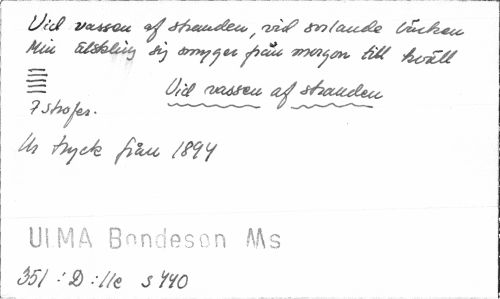 Vid vassen af stranden, vid sorlande bäcken
Min älskling sig smyger från morgon till kväll
7 strofer.
Vid vassen af stranden
Ur tryck från 1894
ULMA Bondeson Ms
351 : D : 11e s 440